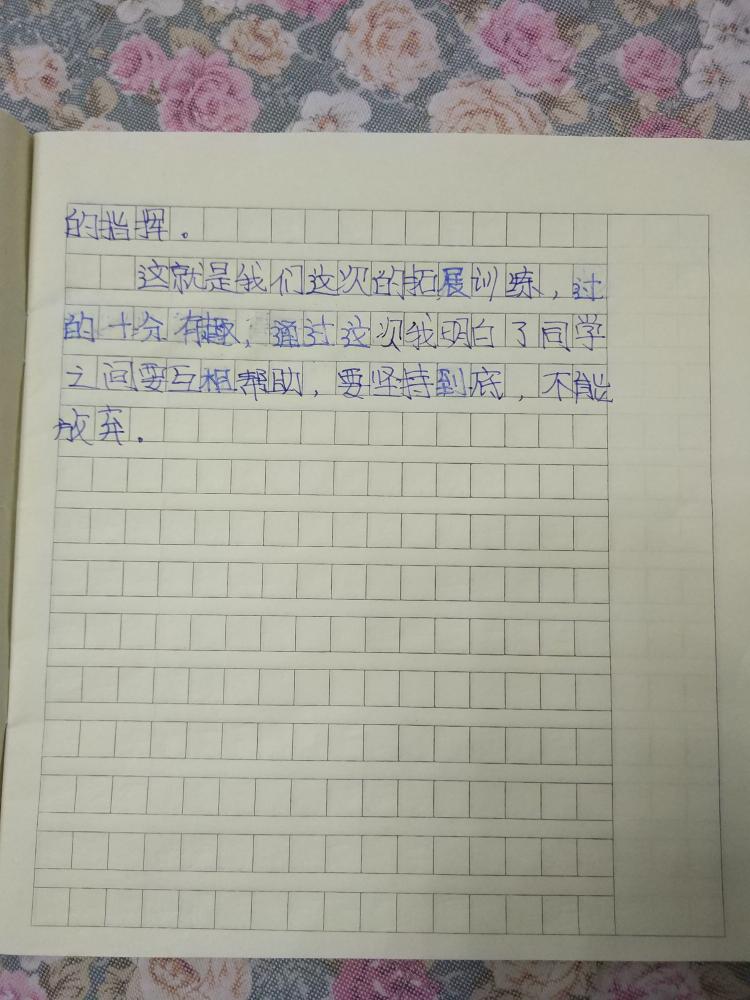 的指挥。
这就是我们这次的拓展训练，过
的十分有趣，通过这次我明白了同学
之间要互相帮助，要坚持到底，不能
放弃。